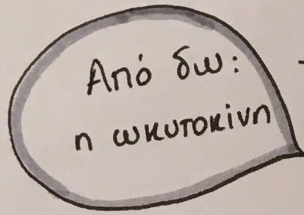 Από δω:
η ωκυτοκίνη